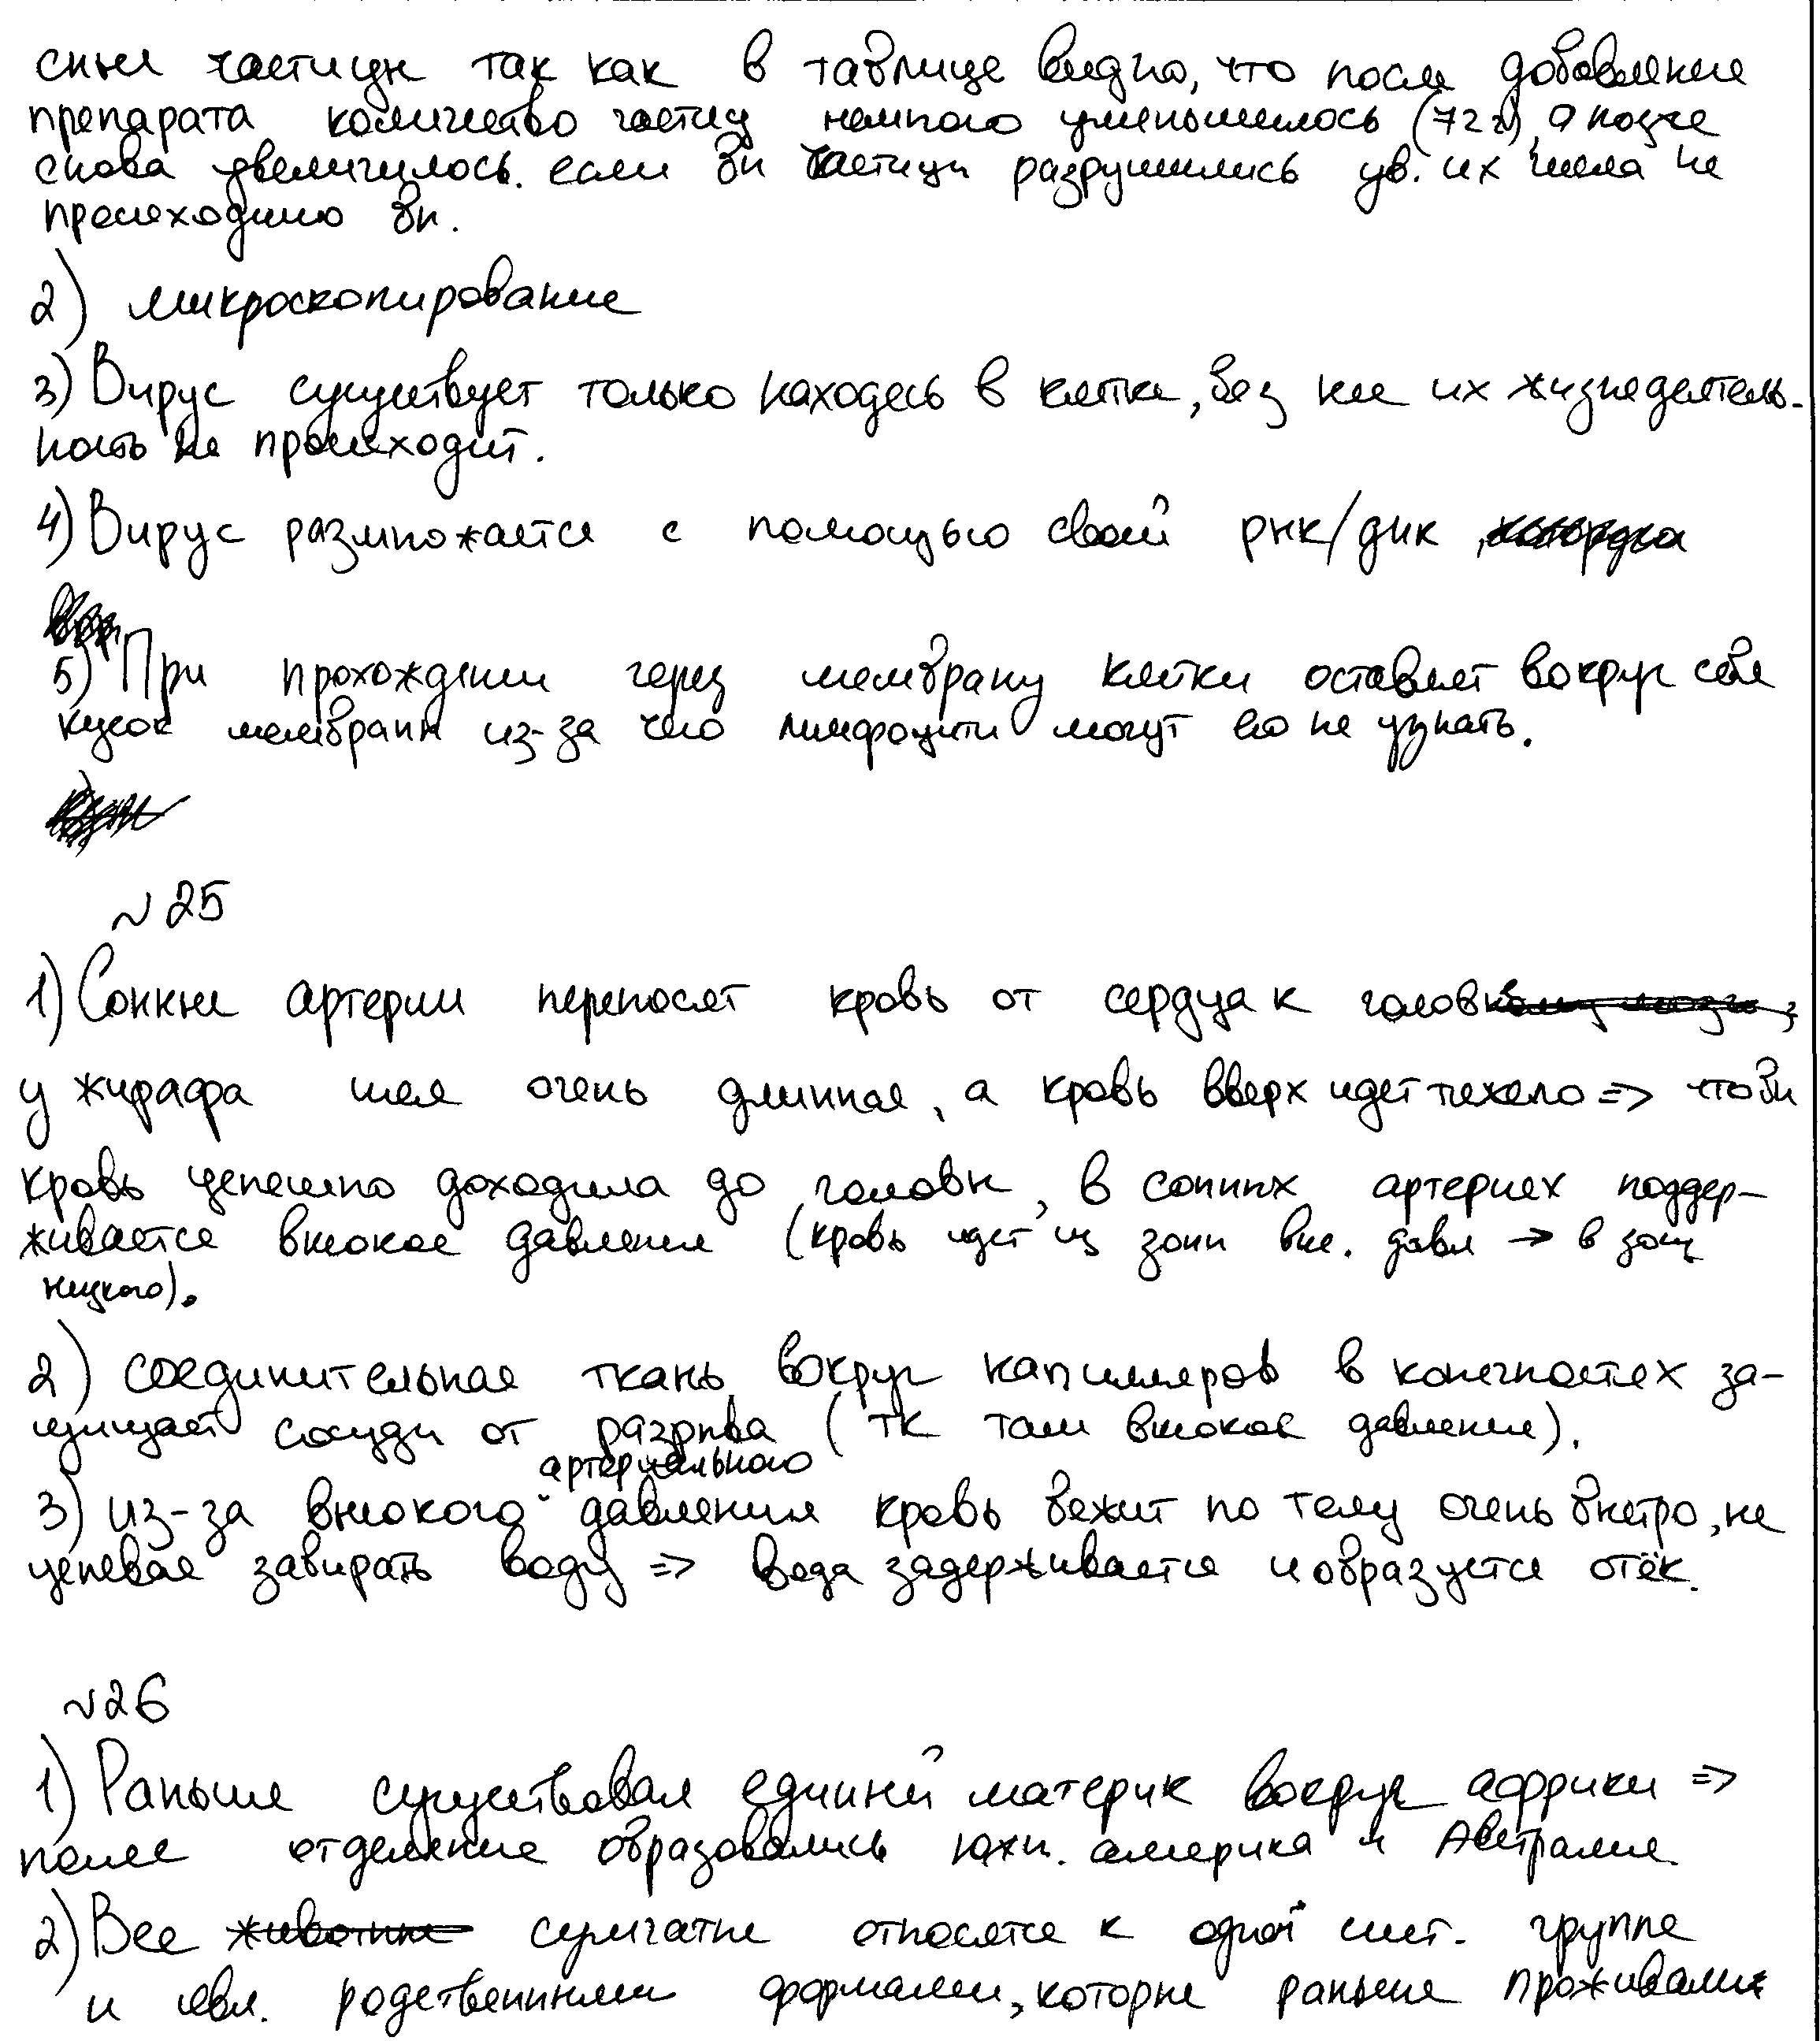 сные частицы так как в таблице видно, что после добавления
препарата количество частиц немного уменьшилось (72 г), а позже
снова увеличилось. если бы частицы разрушились ув. их числа не
происходило бы.
2) микроскопирование
3) Вирус существует только находясь в клетке, без нее их жизнедеятель-
ность не происходит.
4) Вирус размножается с помощью своей рнк/днк,
5) При прохождении через мембрану клетки оставляет вокруг себя
кусок мембраны из-за чего лимфоциты могут его не узнать.
№25
1) Сонные артерии переносят кровь от сердца к голов
у жирафа шея очень длинная, а кровь вверх идет тяжело => чтобы
кровь успешно доходила до головы, в сонных артериях поддер-
живается высокое давление (кровь идет из зоны выс. давл → в зону
низкого).
2) соединительная ткань вокруг капилляров в конечностях за-
щищает сосуды от разрыва (тк там высокое давление).
артериального
3) Из-за высокого давления кровь бежит по телу очень быстро, не
успевая забирать воду => вода задерживается и образуется отёк.
№26
1) Раньше существовал единый материк вокруг африки =>
после отделения образовались южн. америка и Австралия.
2) Все животные сумчатые относятся к одной сист. группе
и явл. родственными формами, которые раньше проживали